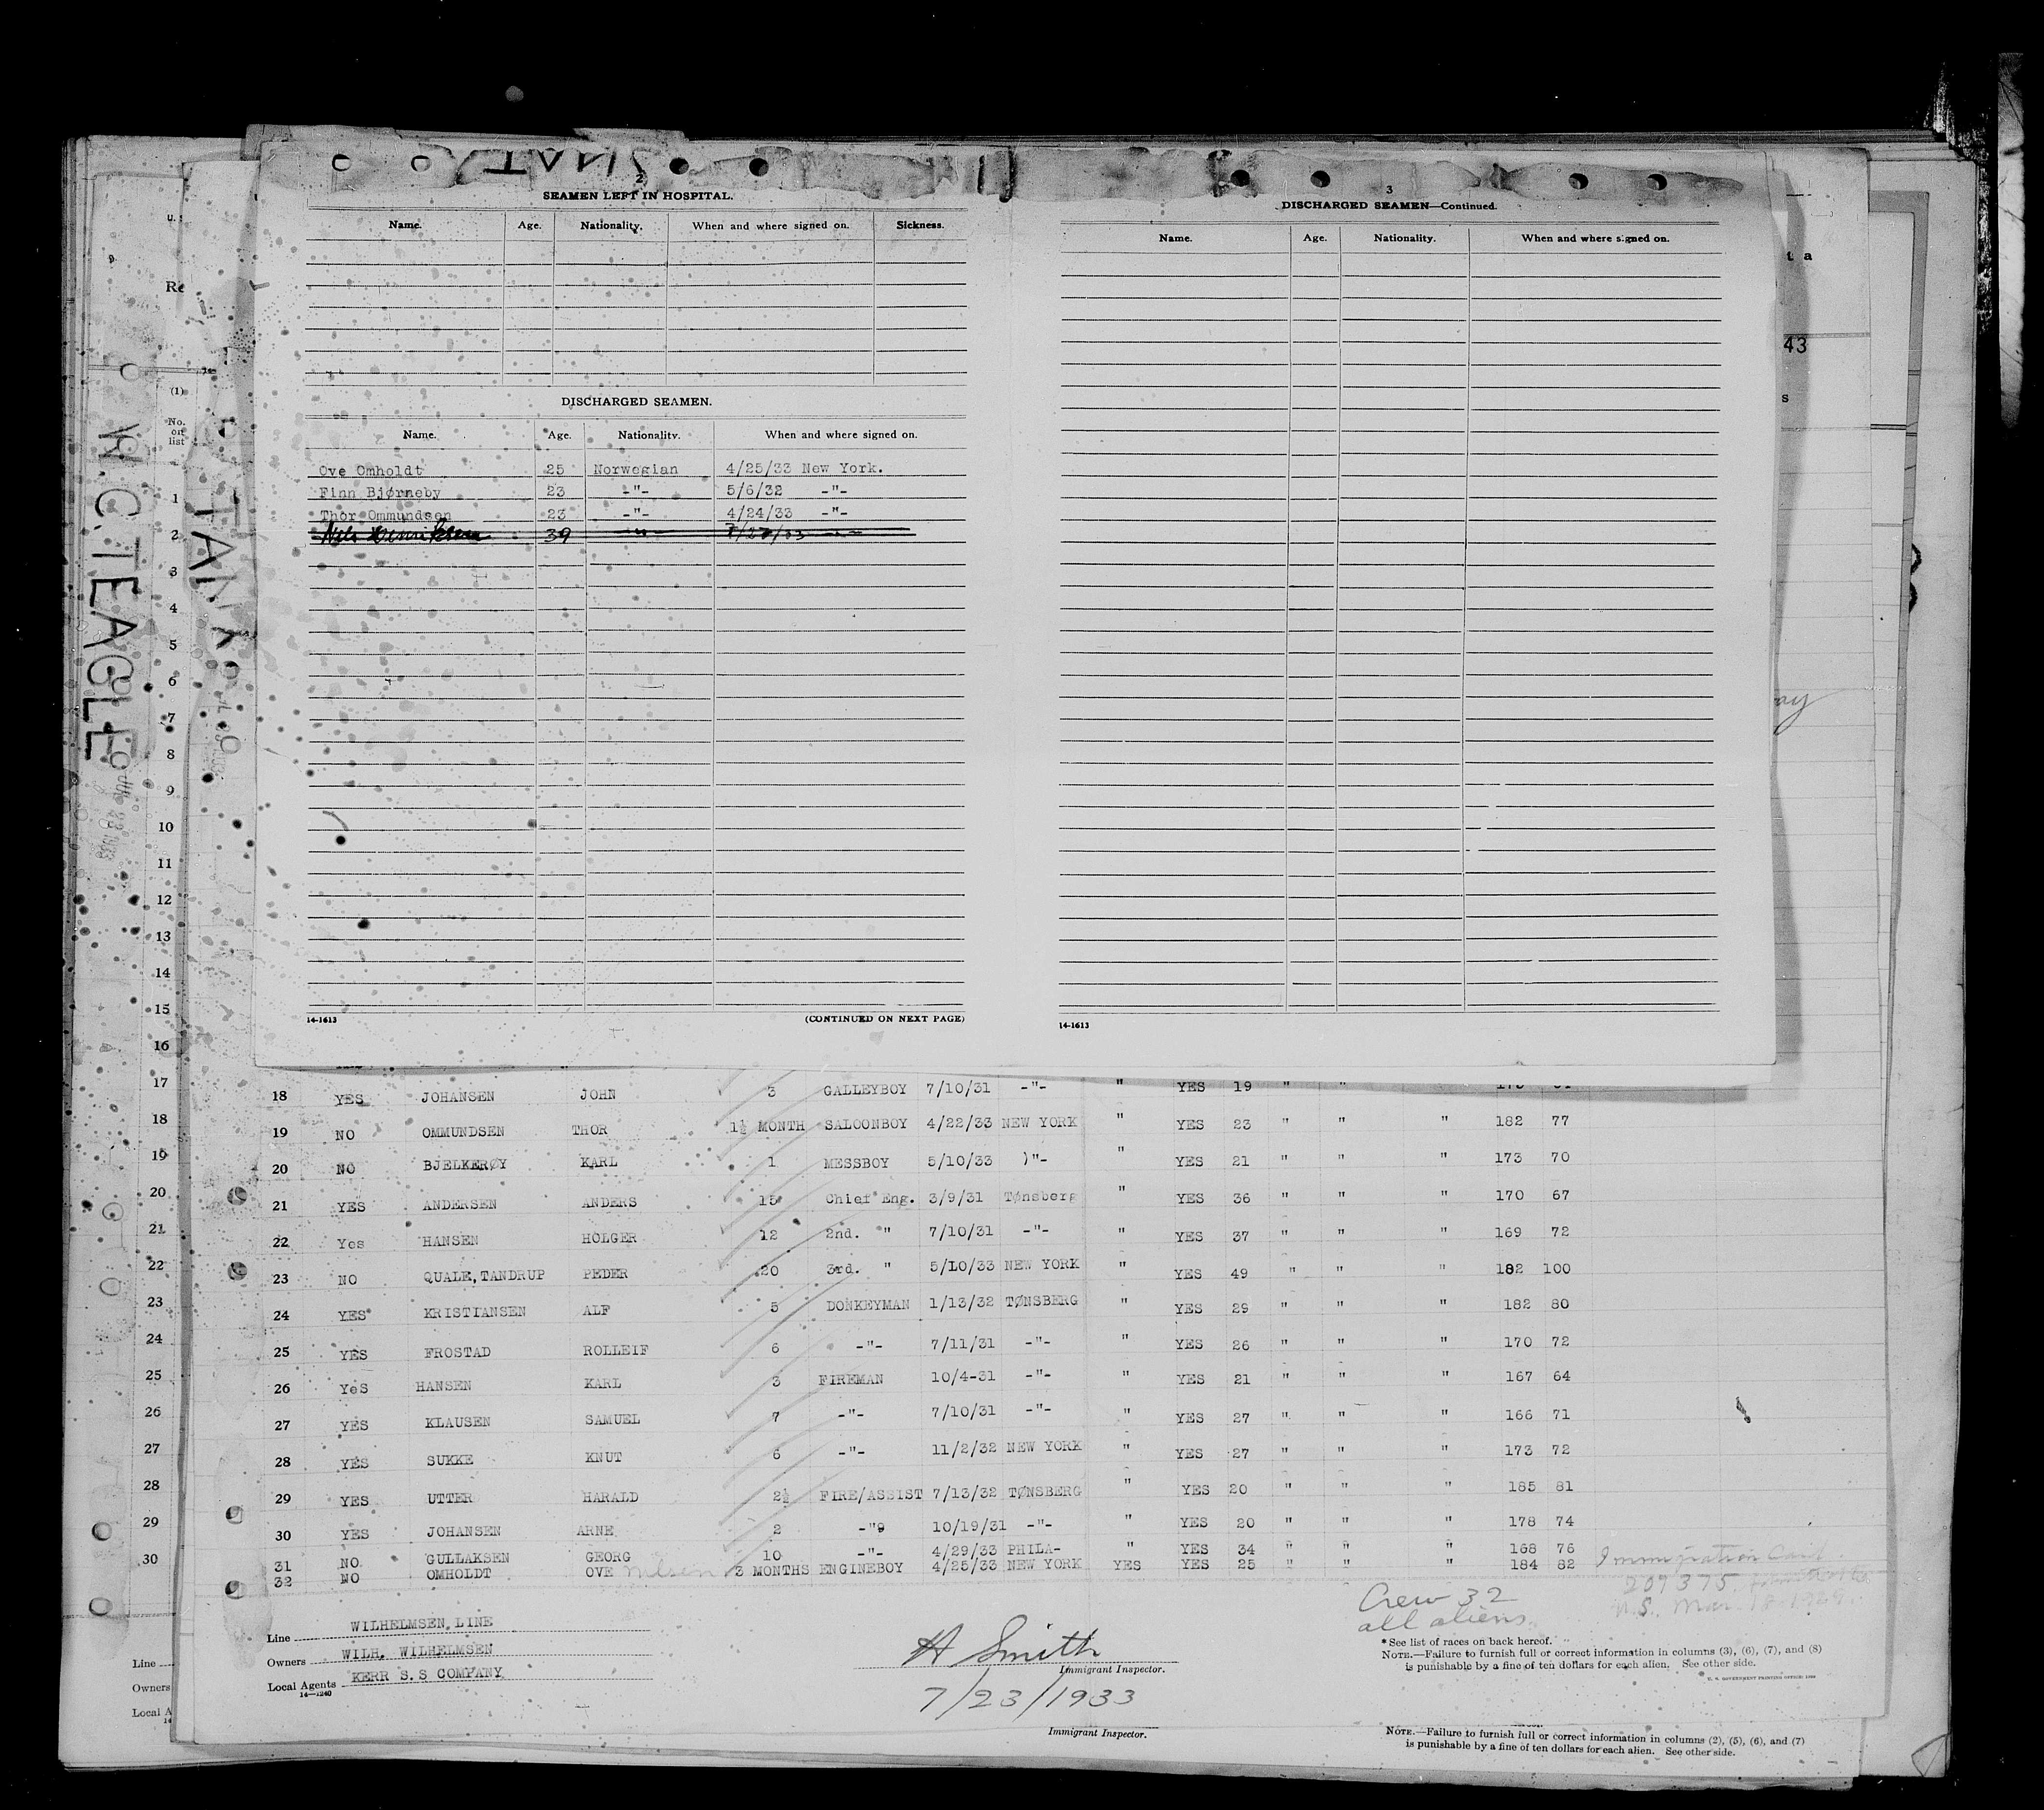 2
SEAMEN LEFT IN HOSPITAL.
Name. Age. Nationality. When and where signed on. Sickness.
DISCHARGED SEAMEN.
Name. Age. Nationality. When and where signed on.
Ove Omholdt 25 Norwegian 4/25/33 New York.
Finn Bjørneby 23 -"- 5/6/32 -"-
Thor Ommundsen 23 -"- 4/24/33 -"-
39
14-1613 (CONTINUED ON NEXT PAGE)
3
DISCHARGED SEAMEN—Continued.
Name. Age. Nationality. When and where signed on.
14-1613
W.C. TEAGLE
TAI
U.
(1)
No. on list
1
2
3
4
5
6
7
8
9
10
11
12
13
14
15
16
17
18
19
20
21
22
23
24
25
26
27
28
29
30
Line
Owners
Local A
43
18 YES JOHANSEN JOHN 3 GALLEYBOY 7/10/31 -"- " YES 19 " "
19 NO OMMUNDSEN THOR 1½ MONTH SALOONBOY 4/22/33 NEW YORK " YES 23 " " " 182 77
20 NO BJELKERØY KARL 1 MESSBOY 5/10/33 )"- " YES 21 " " " 173 70
21 YES ANDERSEN ANDERS 15 Chief Eng. 3/9/31 Tønsberg " YES 36 " " " 170 67
22 Yes HANSEN HOLGER 12 2nd. " 7/10/31 -"- " YES 37 " " " 169 72
23 NO QUALE,TANDRUP PEDER 20 3rd. " 5/10/33 NEW YORK " YES 49 " " " 182 100
24 YES KRISTIANSEN ALF 5 DONKEYMAN 1/13/32 TØNSBERG " YES 29 " " " 182 80
25 YES FROSTAD ROLLEIF 6 -"- 7/11/31 -"- " YES 26 " " " 170 72
26 YeS HANSEN KARL 3 FIREMAN 10/4-31 -"- " YES 21 " " " 167 64
27 YES KLAUSEN SAMUEL 7 -"- 7/10/31 -"- " YES 27 " " " 166 71
28 YES SUKKE KNUT 6 -"- 11/2/32 NEW YORK " YES 27 " " " 173 72
29 YES UTTER HARALD 2½ FIRE/ASSIST 7/13/32 TØNSBERG " YES 20 " " " 185 81
30 YES JOHANSEN ARNE 2 -"9 10/19/31 -"- " YES 20 " " " 178 74
31 NO. GULLAKSEN GEORG 10 -"- 4/29/33 PHILA- " YES 34 " " " 168 76
32 NO OMHOLDT OVE Nilsen 3 MONTHS ENGINEBOY 4/25/33 NEW YORK YES YES 25 " " " 184 82 Immigration Card
207375
U.S. Mar. 18-1929.
Crew 32
all aliens
Line WILHELMSEN LINE
Owners WILH. WILHELMSEN
Local Agents KERR S.S COMPANY
14—1240
H Smith
Immigrant Inspector.
7/23/1933
Immigrant Inspector.
*See list of races on back hereof.
NOTE.—Failure to furnish full or correct information in columns (3), (6), (7), and (8)
is punishable by a fine of ten dollars for each alien. See other side.
NOTE.—Failure to furnish full or correct information in columns (2), (5), (6), and (7)
is punishable by a fine of ten dollars for each alien. See other side.